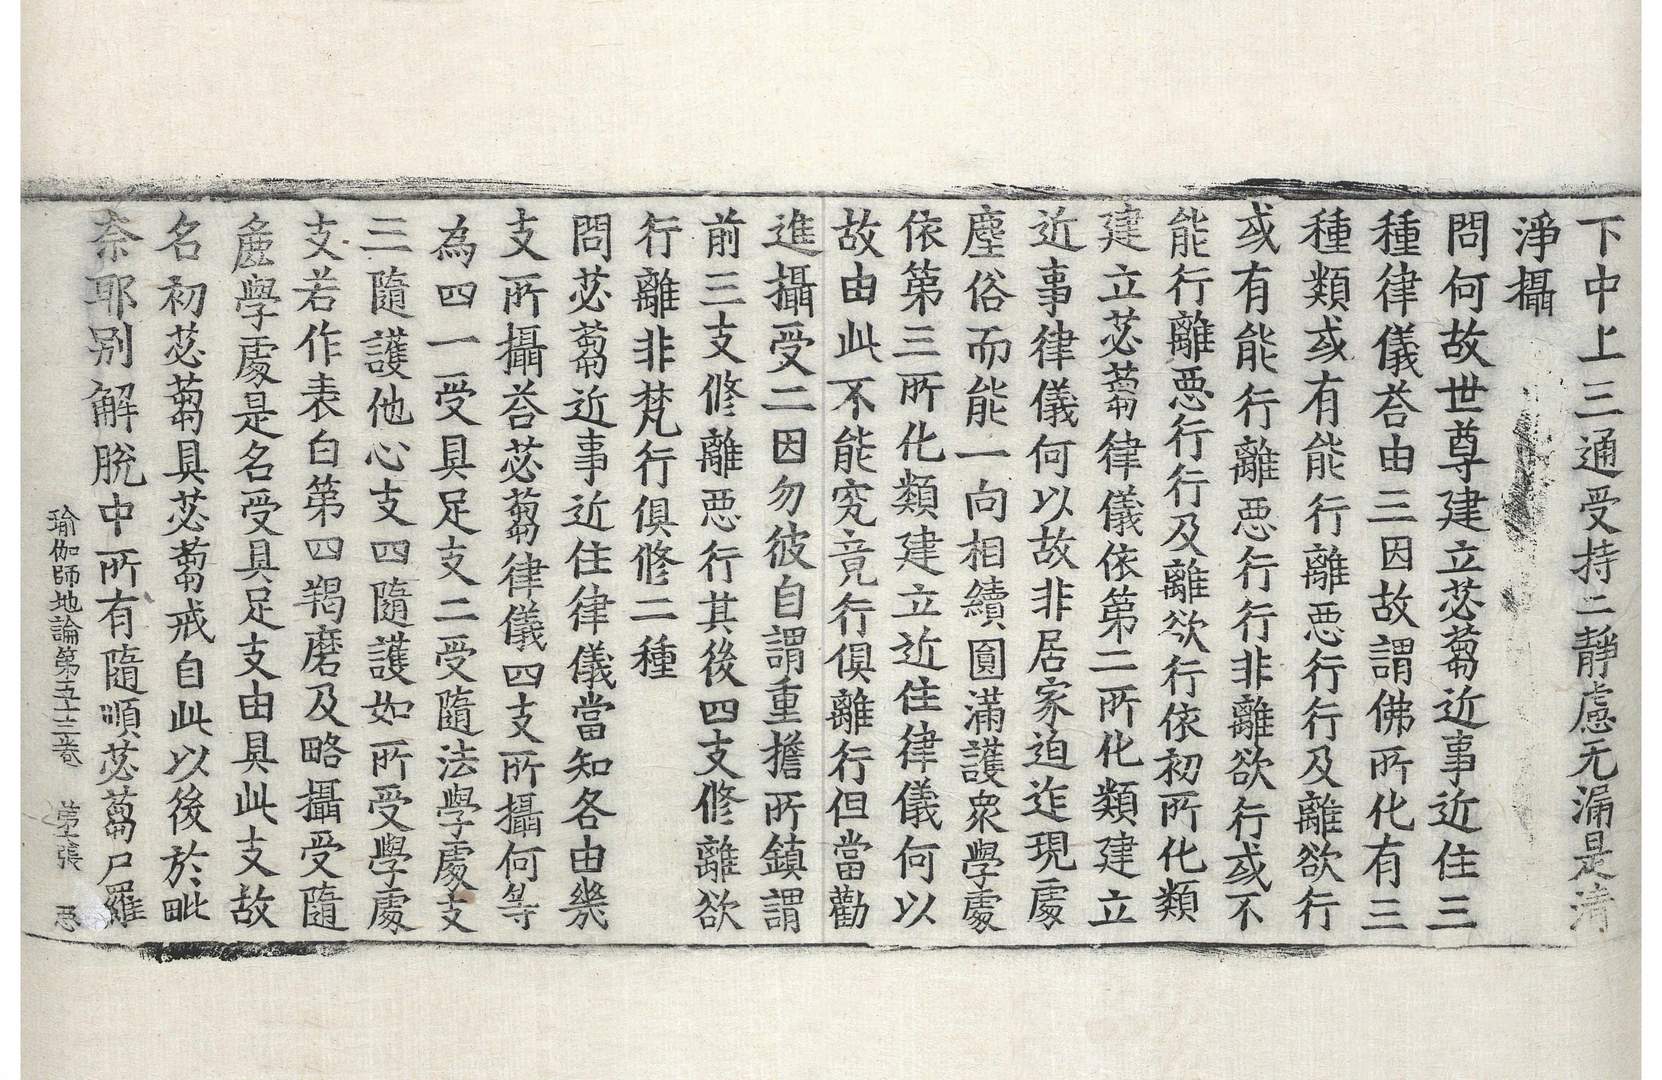 下中上三通受持二靜慮无漏是清
淨攝
問何故世尊建立苾蒭近事近住三
種律儀荅由三因故謂佛所化有三
種類或有能行離惡行行及離欲行
或有能行離惡行行非離欲行或不
能行離惡行行及離欲行依初所化類
建立苾蒭律儀依第二所化類建立
近事律儀何以故非居家迫迮現處
塵俗而能一向相續圓滿護衆學處
依第三所化類建立近住律儀何以
故由此不能究竟行俱離行但當勸
進攝受二因勿彼自謂重擔所鎮謂
前三支修離惡行其後四支修離欲
行離非梵行俱修二種
問苾蒭近事近住律儀當知各由幾
支所攝荅苾蒭律儀四支所攝何等
為四一受具足支二受隨法學處支
三隨護他心支四隨護如所受學處
支若作表白第四羯磨及略攝受隨
麁學處是名受具足支由具此支故
名初苾蒭具苾蒭戒自此以後於毗
奈耶別解脫中所有隨順苾蒭尸羅
瑜伽師地論第五十三卷 第 張 惡